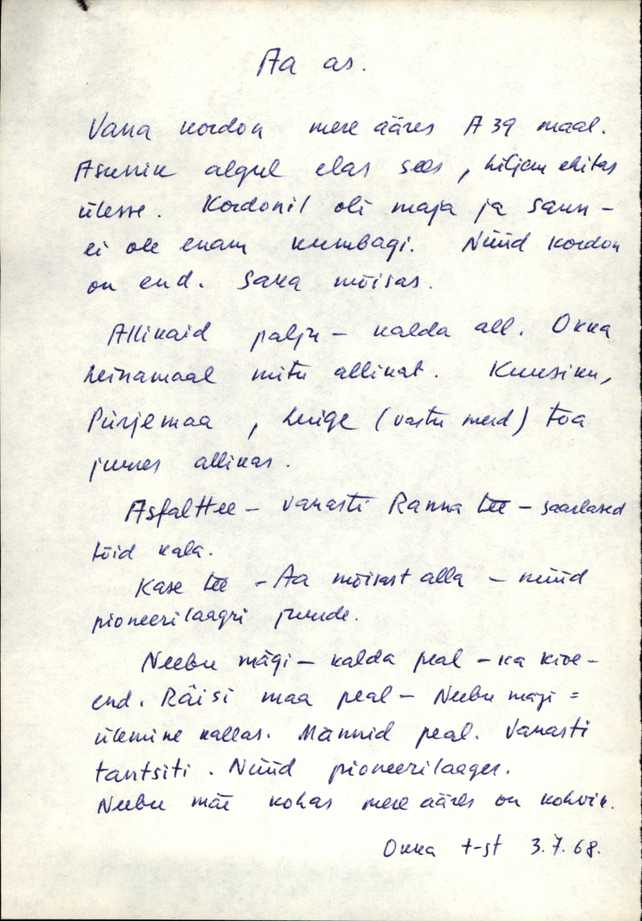 Aa as.
Vana kordon mere ääres A 39 maal.
Asunik algul elas sees, hiljem ehitas
ülesse. Kordonil oli maja ja saun –
ei ole enam kumbagi. Nüüd kordon
on end. Saka mõisas.
Allikaid palju – kalda all. Okka
heinamaal mitu allikat. Kuusiku,
Purjemaa, Luige (vastu merd) toa
juures allikas.
Asfalttee – vanasti Ranna tee – saarlased
tõid kala.
Kase tee – Aa mõisast alla – nüüd
pioneerilaagri juurde.
Neebu mägi – kalda peal – ka kive-
end. Räisi maa peal – Neebu mägi =
ülemine kallas. Männid peal. Vanasti
tantsiti. Nüüd pioneerilaager.
Neebu mäe kohas mere ääres on kohvik.
Okka t-st 3.7.68.